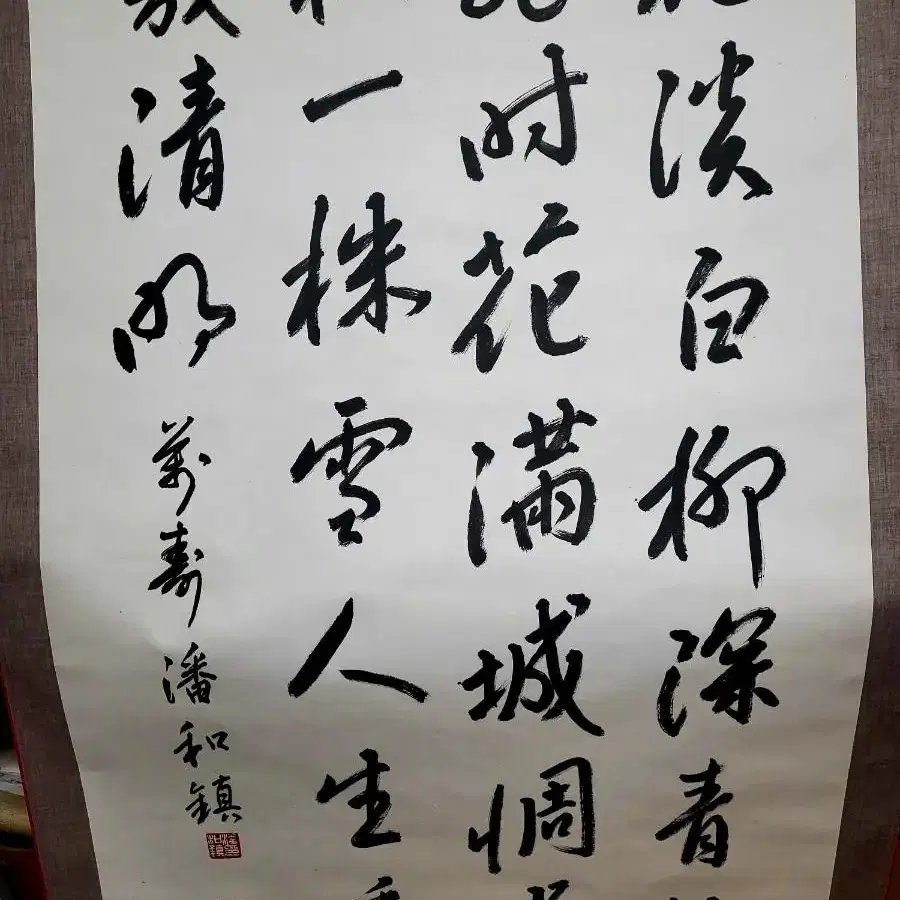 淡白柳深青
时花滿城惆
一株雪人生
清明
萬壽潘和鎮